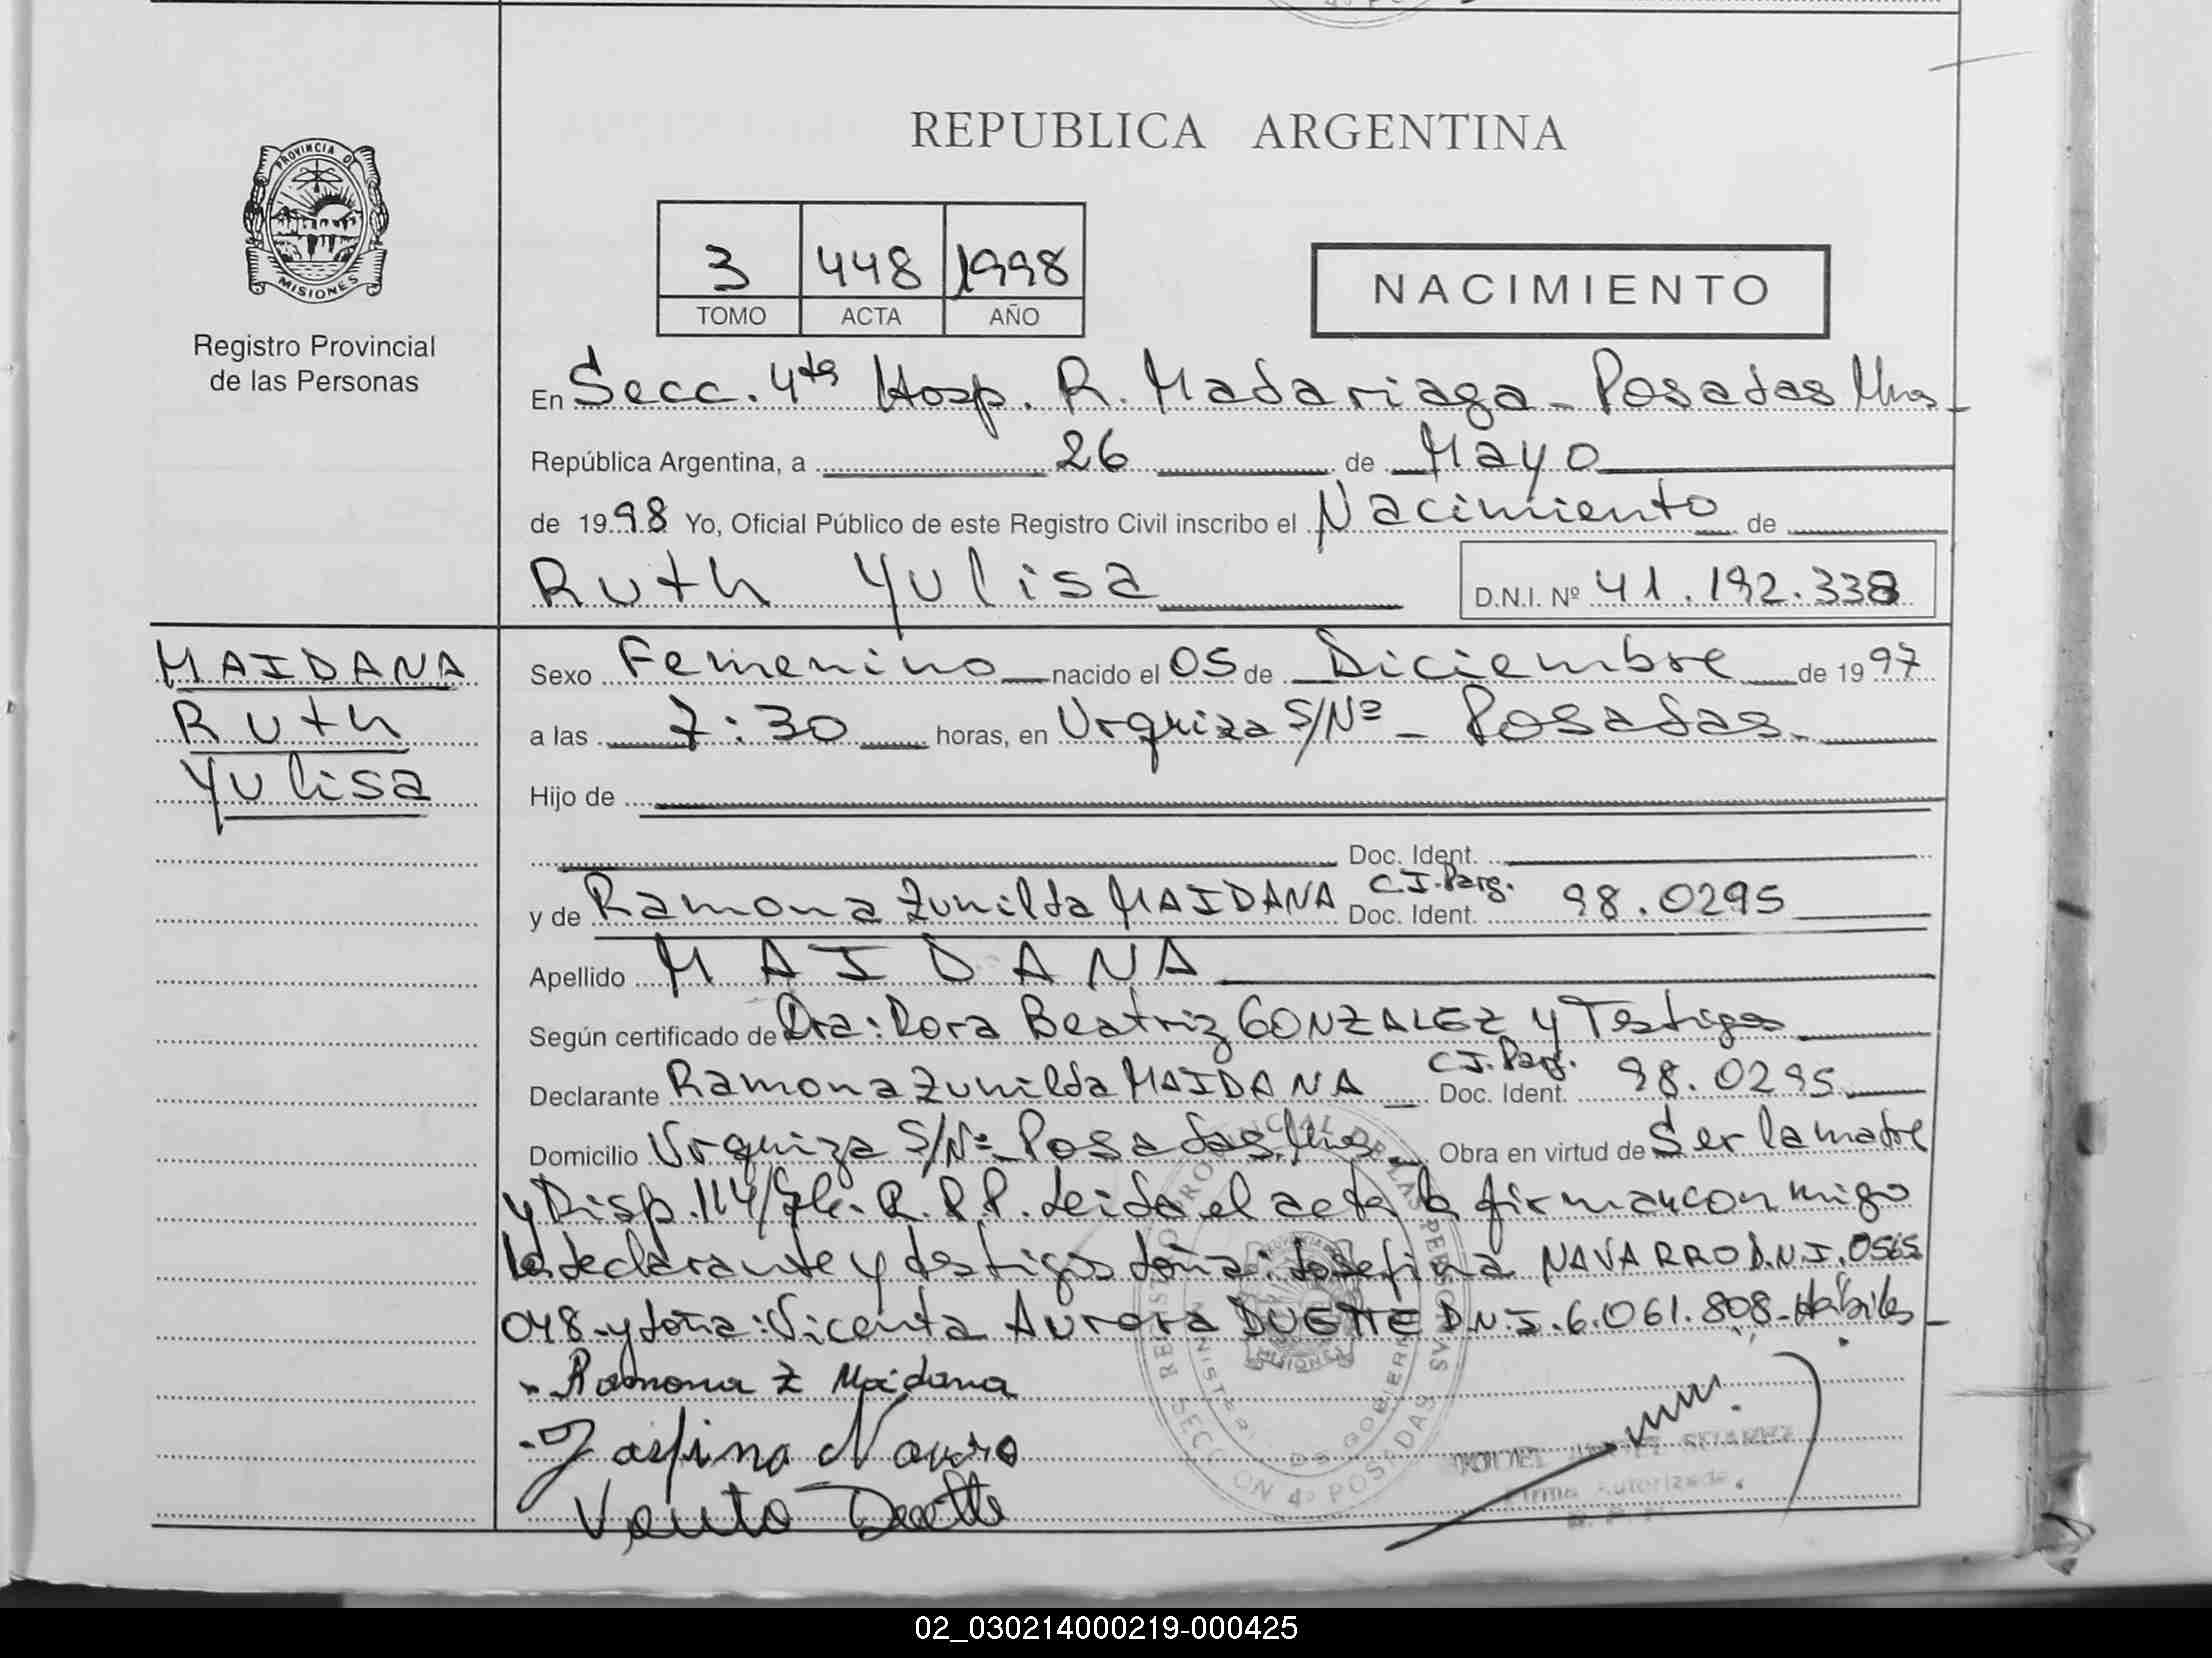 REPUBLICA ARGENTINA
PROVINCIA DE
MISIONES
Registro Provincial
de las Personas
3 448 1998
TOMO ACTA AÑO
NACIMIENTO
En Secc. 4ta Hosp. R. Madariaga - Posadas Mnes -
República Argentina, a 26 de Mayo
de 1998 Yo, Oficial Público de este Registro Civil inscribo el Nacimiento de
Ruth Yulisa D.N.I. Nº 41.192.338
MAIDANA
Ruth
Yulisa
Sexo Femenino nacido el 05 de Diciembre de 1997
a las 7:30 horas, en Urquiza S/Nº - Posadas -
Hijo de
Doc. Ident.
y de Ramona Zunilda MAIDANA C.I. Parg. Doc. Ident. 98.0295
Apellido MAIDANA
Según certificado de Dra: Dora Beatriz GONZALEZ y Testigos
Declarante Ramona Zunilda MAIDANA C.I. Parg. Doc. Ident. 98.0295
Domicilio Urquiza S/Nº - Posadas, Mnes - Obra en virtud de Ser la madre
y Disp. 114/ R.P.P. Leida el acta la firman conmigo
la declarante y testigos doña: Josefina NAVARRO D.N.I. 0565
048 - y doña: Vicenta Aurora DUETTE D.N.I. 6.061.808 - Hábiles -
Ramona Z Maidana
Josefina Navarro
Duette
REGISTRO PROVINCIAL DE LAS PERSONAS
MINISTERIO DE GOBIERNO
SECCION 4ª POSADAS
MISIONES
Firma Autorizada
02_030214000219-000425